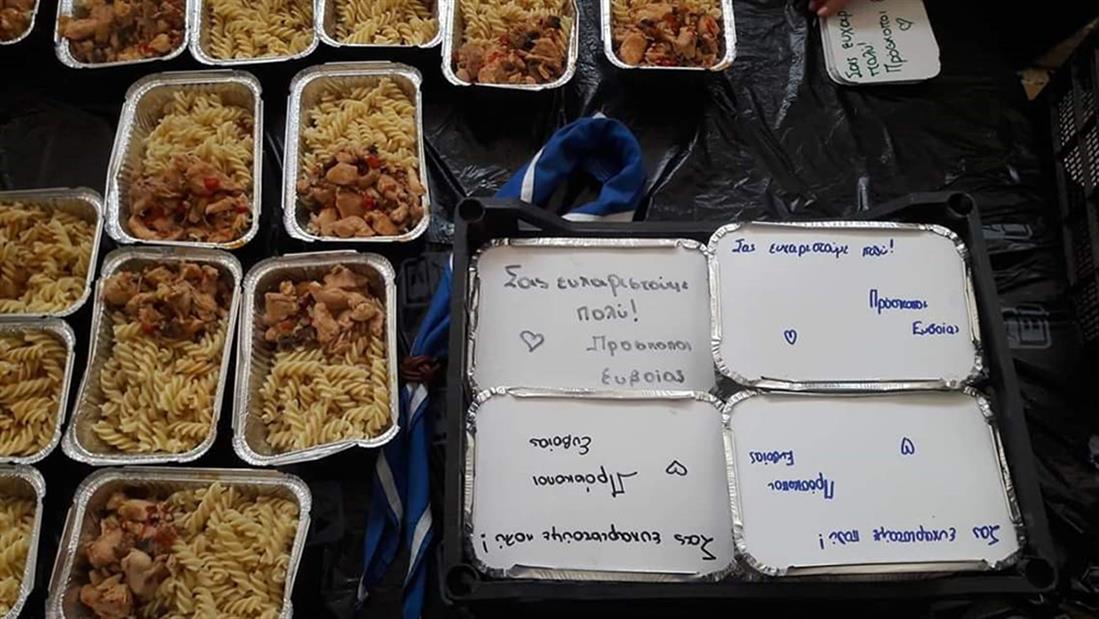 Σας ευχαριστούμε
πολύ!
Πρόσκοποι
Ευβοίας
Σας ευχαριστούμε πολύ!
Πρόσκοποι
Ευβοίας
Σας ευχαριστούμε πολύ!
Πρόσκοποι
Ευβοίας
Σας ευχαριστούμε πολύ!
Πρόσκοποι
Ευβοίας
Σας
πολύ!
Πρόσκοποι